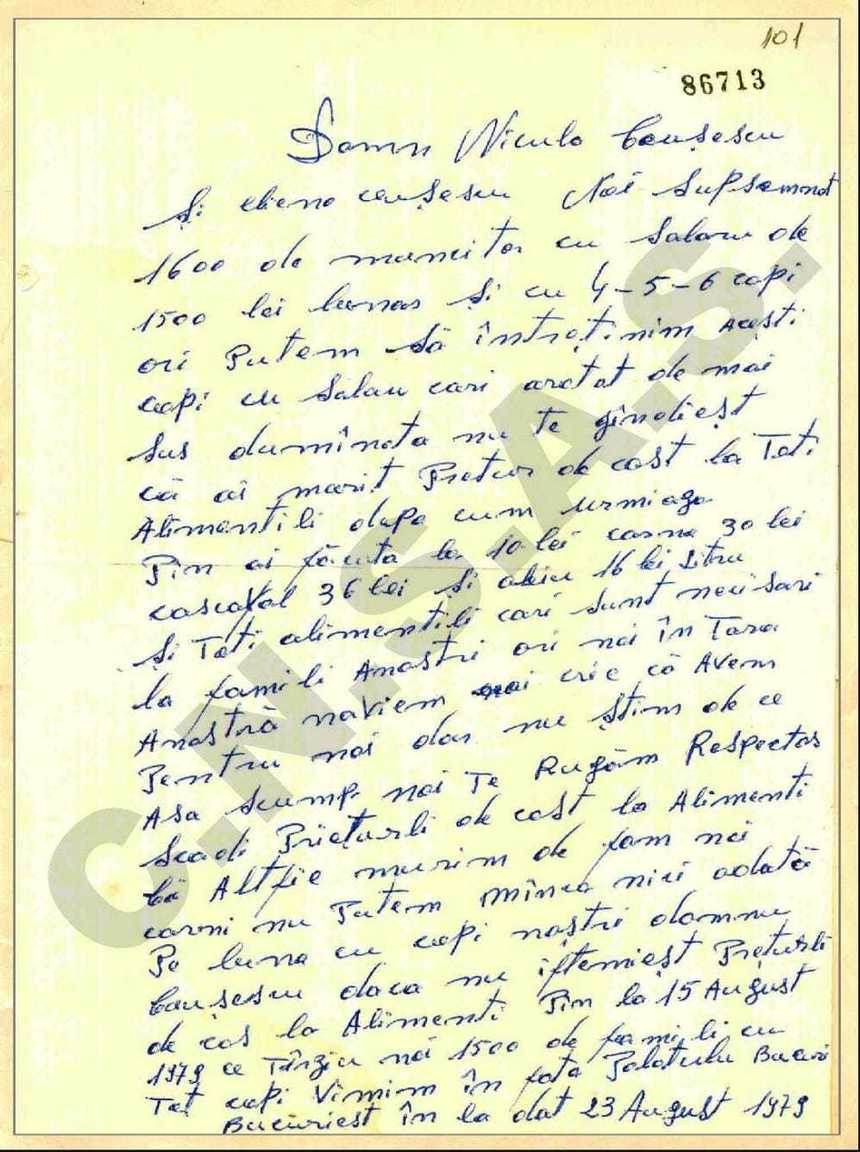 101
86713
Domn Niculo Ceușescu
Și eliena ceușescu Noi supsemnat
1600 de muncitor cu salaru de
1500 lei lunar și cu 4-5-6 copi
ori Putem să întrțtinim acești
copi cu salau cari aratat de mai
sus dumînata nu te gîndiești
că ai marit Prețur de cost la Toti
Alimentili dupa cum urmiaza
Pîn ai făcuta la 10 lei carna 30 lei
cascaval 36 lei și uleiu 16 lei Litru
și Toti alimentili cari sunt necisari
la famili Anostri ori noi în Tara
Anostră naviem nici crie că Avem
Pentru noi dar nu știm de ce
Asa scump. noi Te Rugăm Respectos
scadi Prieturli de cost la Alimenti
că Altfie murim de fam noi
carni nu Putem mînca nici odată
Pe luna cu copi noștri domnnu
Ceușescu daca nu iftiniești Prețurli
de cos la Alimenti Pîn la 15 August
1979 ce Tîrziu noi 1500 de famili cu
Tot copi Vinim în fata Palatulu Bucuri
Bucuriest în la dat 23 August 1979
C.N.S.A.S.